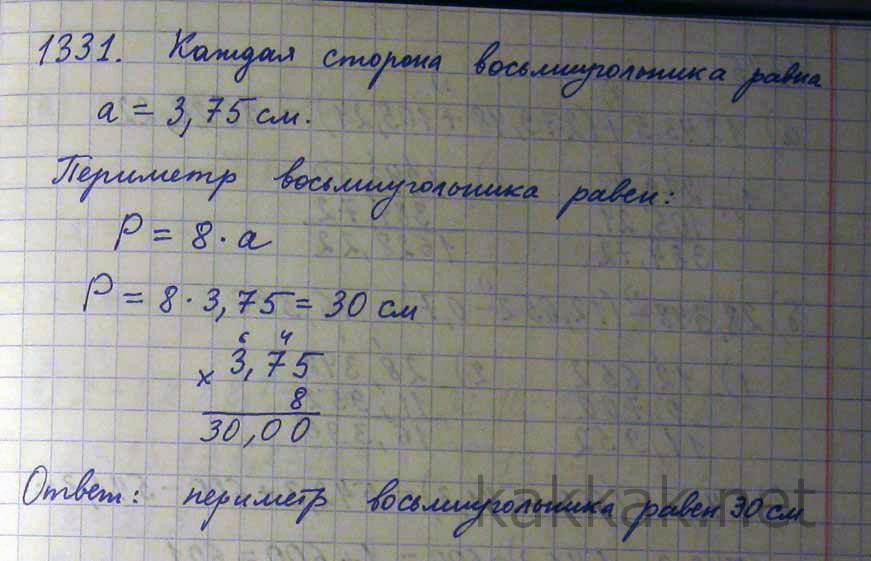 1331. Каждая сторона восьмиугольника равна
a = 3,75 см.
Периметр восьмиугольника равен:
P = 8 · a
P = 8 · 3,75 = 30 см
6 4
× 3,75
8
30,00
Ответ: периметр восьмиугольника равен 30 см
kakkak.net